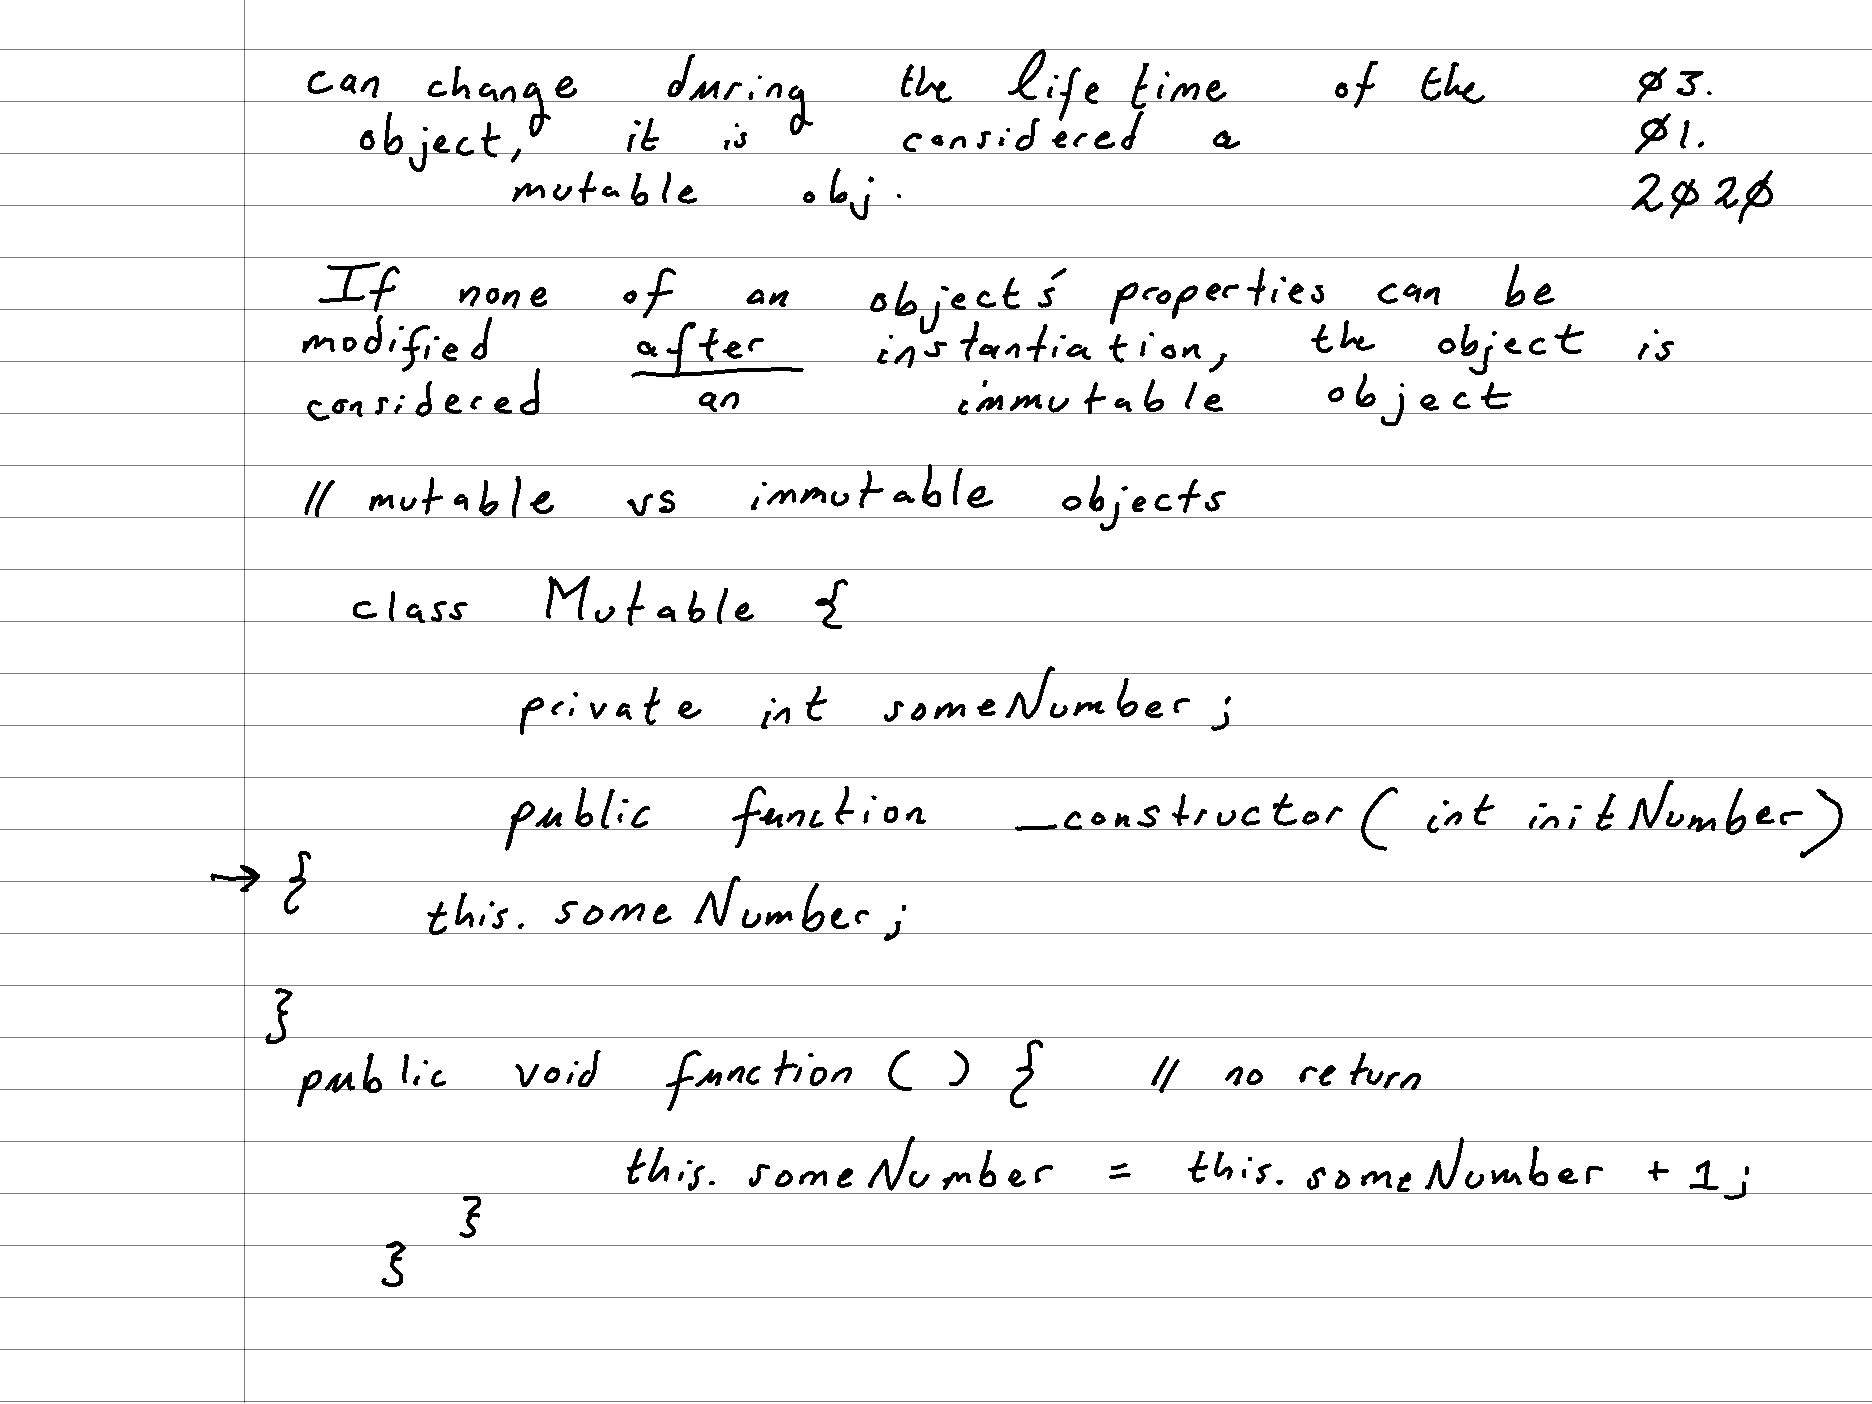 can change during the life time of the ø3.
object, it is considered a ø1.
mutable obj. 2ø2ø
If none of an object's properties can be
modified after instantiation, the object is
considered an immutable object
// mutable vs immutable objects
class Mutable {
private int someNumber;
public function _constructor( int initNumber)
→ {
this. someNumber;
}
public void function ( ) { // no return
this. someNumber = this. someNumber + 1;
}
}